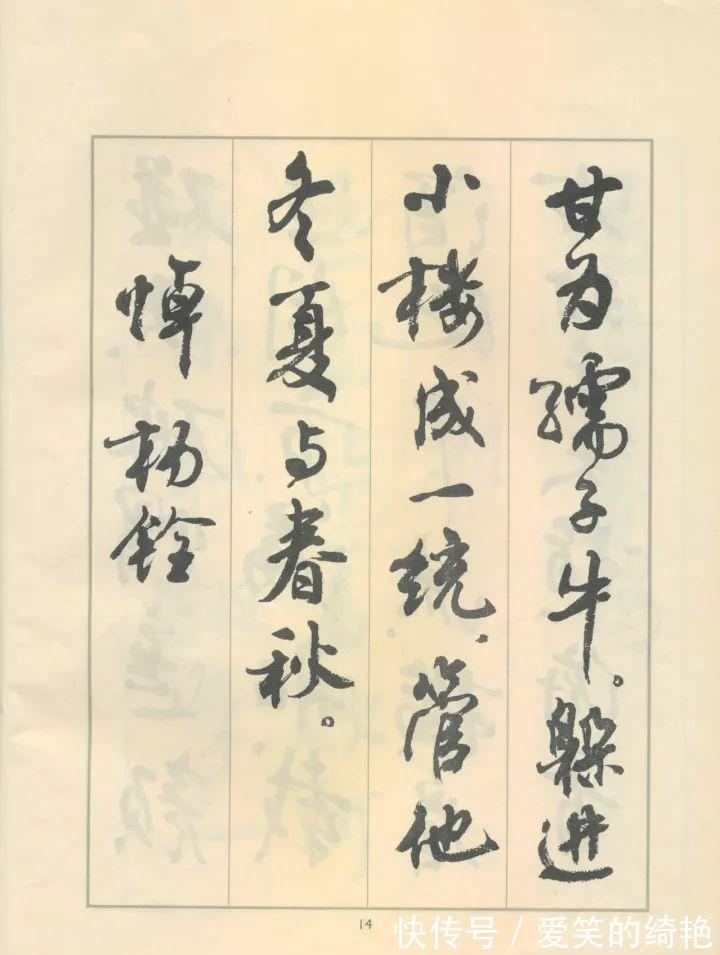 甘为孺子牛。躲进
小楼成一统,管他
冬夏与春秋。
悼杨铨
14
快传号 / 爱笑的绮艳